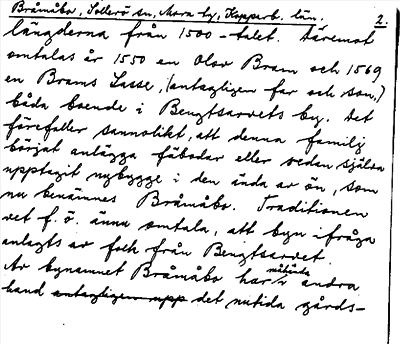 Bråmåbo, Sollerö sn, Mora tg, Kopparb. län. 2.
längderna från 1500-talet. Däremot
omtalas år 1550 en Olov Bram och 1569
en Brams Lasse, (antagligen far och son,)
båda boende i Bengtsarvets by. Det
förefaller sannolikt, att denna familj
börjat anlägga fäbodar eller redan själva
upptagit nybygge i den ända av ön, som
nu benämnes Bråmåbo. Traditionen
vet f. ö. ännu omtala, att byn ifråga
anlagts av folk från Bengtsarvet.
Av bynamnet Bråmåbo har måhända andra
hand antagligen upp det nutida gårds-